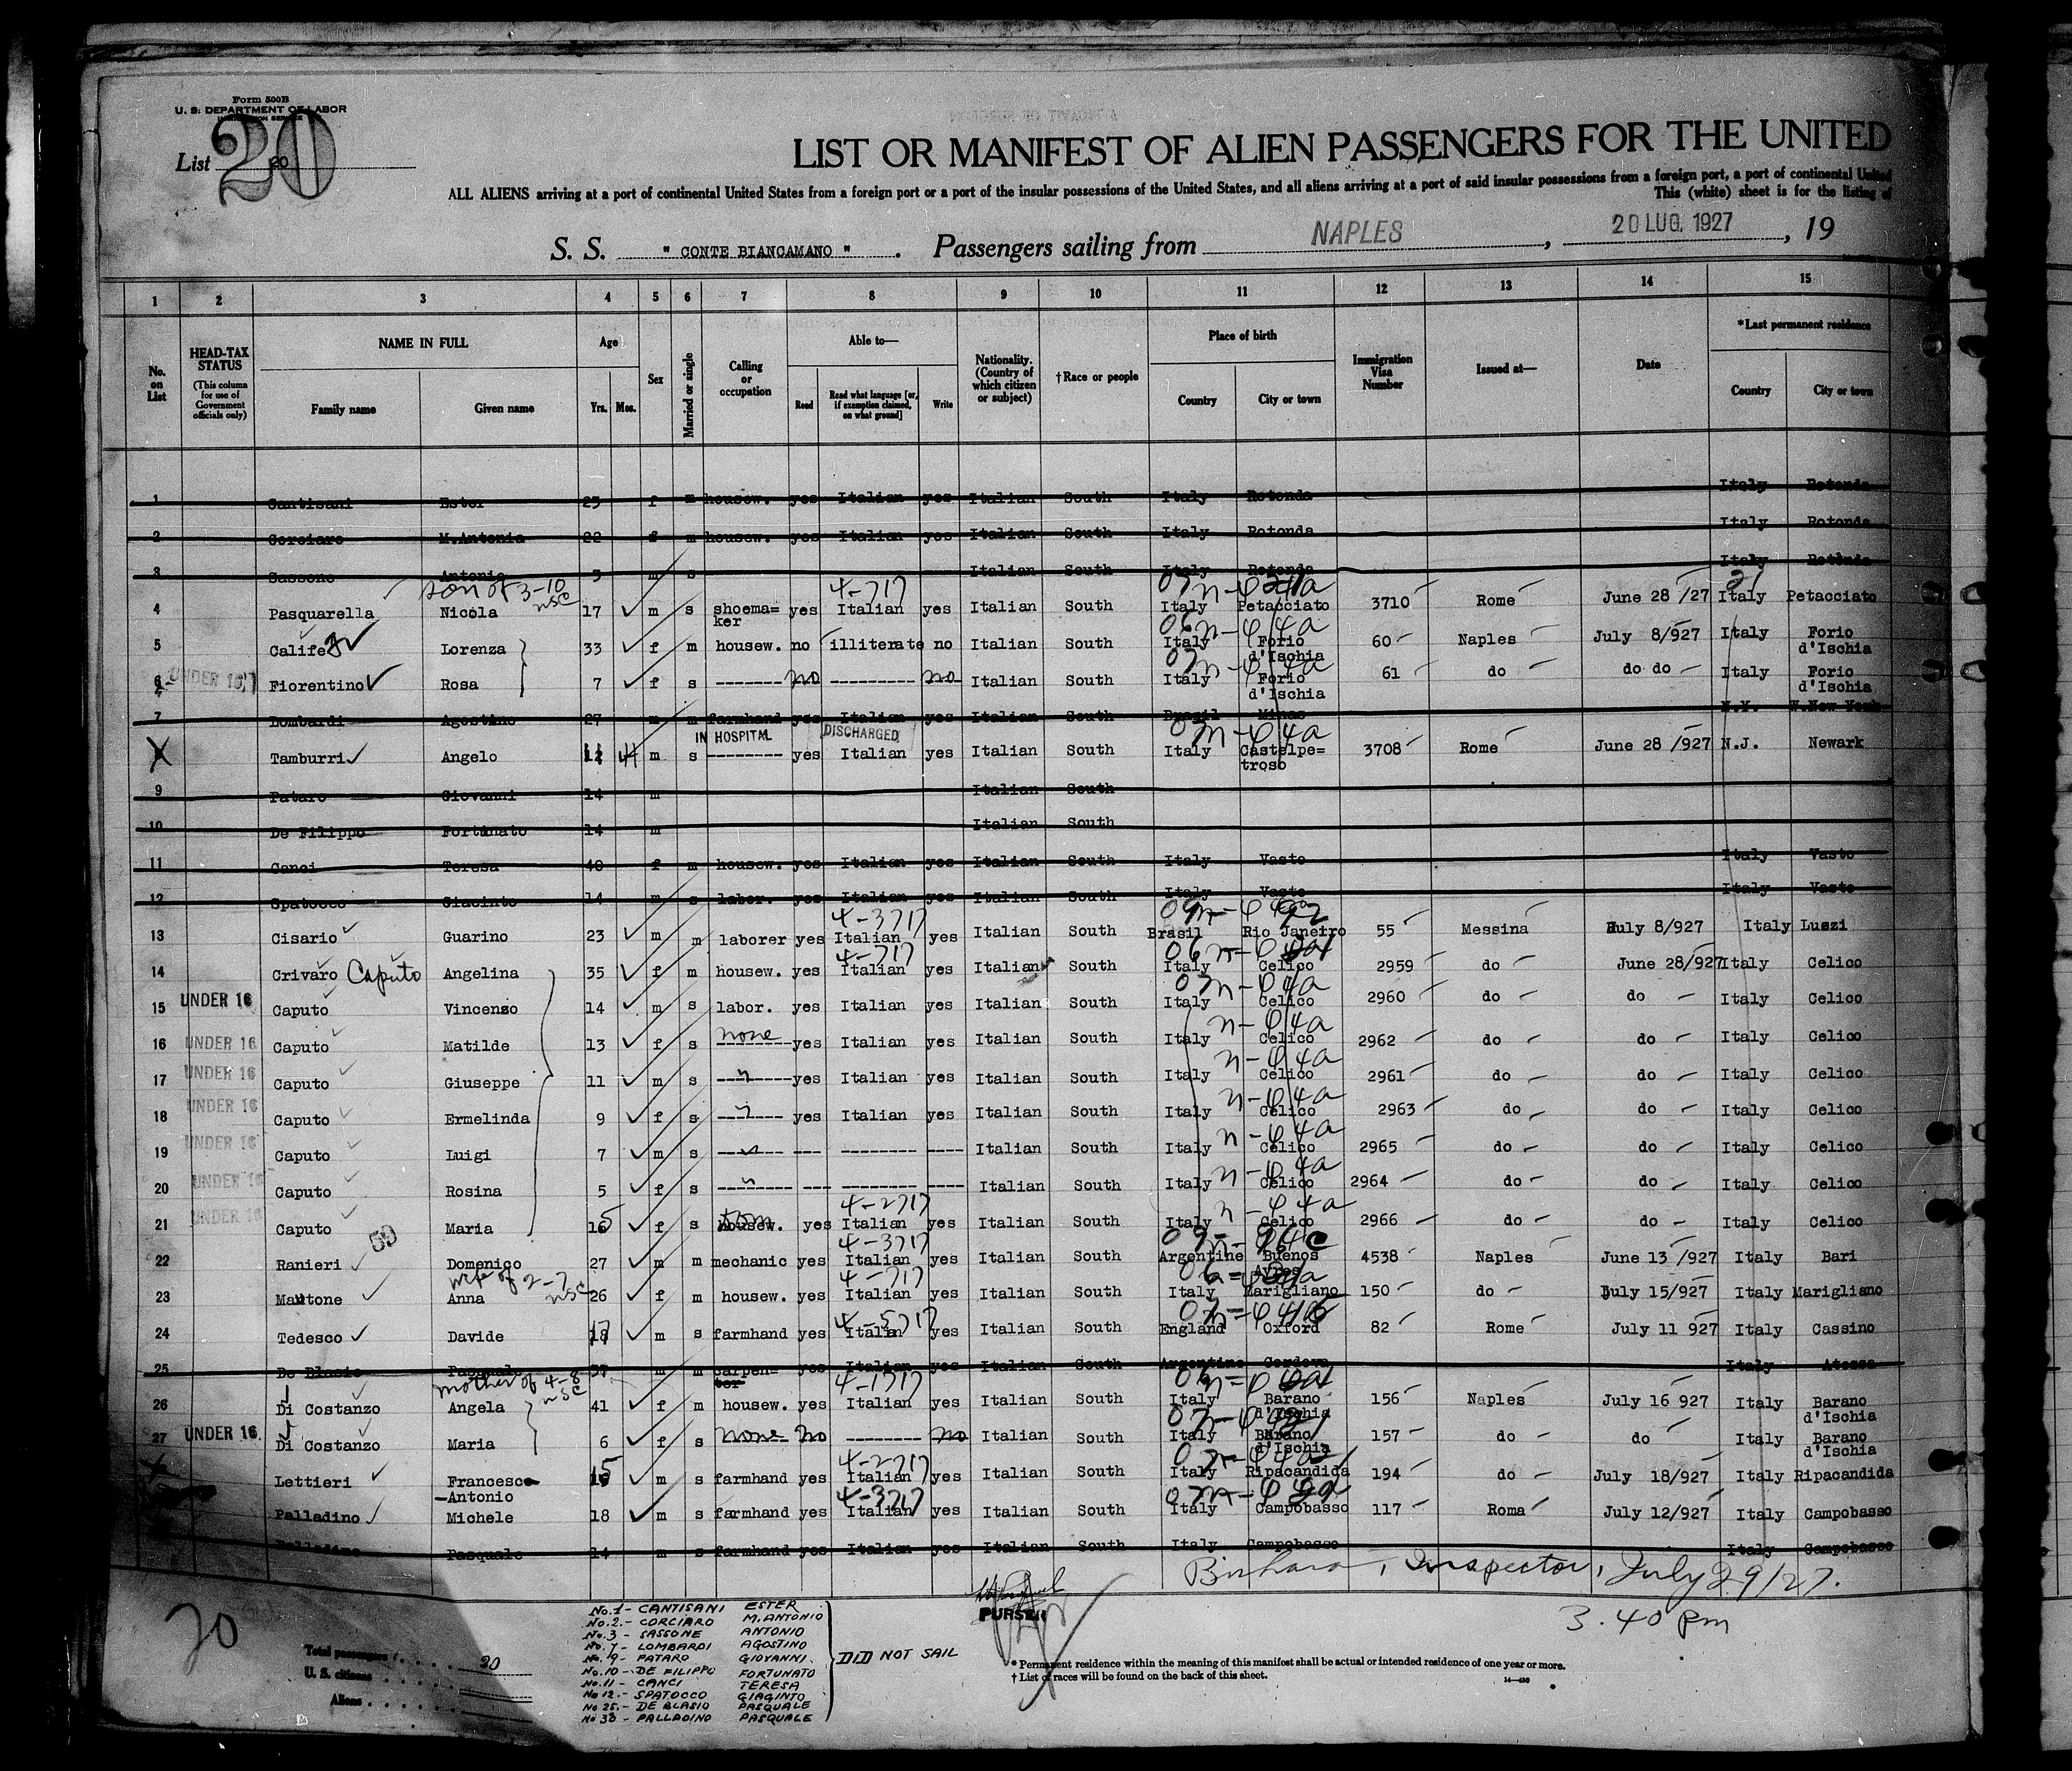 Form 500B
U. S. DEPARTMENT OF LABOR
List 20
20
LIST OR MANIFEST OF ALIEN PASSENGERS FOR THE UNITED
ALL ALIENS arriving at a port of continental United States from a foreign port or a port of the insular possessions of the United States, and all aliens arriving at a port of said insular possessions from a foreign port, a port of continental United
This (white) sheet is for the listing of
S. S. " CONTE BIANCAMANO " . Passengers sailing from NAPLES , 20 LUG. 1927 , 19
1 2 3 4 5 6 7 8 9 10 11 12 13 14 15
No. on List
HEAD-TAX STATUS (This column for use of Government officials only)
NAME IN FULL Family name Given name
Age Yrs. Mos.
Sex
Married or single
Calling or occupation
Able to— Read Read what language [or, if exemption claimed, on what ground] Write
Nationality. (Country of which citizen or subject)
†Race or people
Place of birth Country City or town
Immigration Visa Number
Issued at—
Date
*Last permanent residence Country City or town
1 Cantisani Ester 25 f m housew. yes Italian yes Italian South Italy Rotonda Italy Rotonda
2 Corciaro M.Antonia 22 f m housew. yes Italian yes Italian South Italy Rotonda Italy Rotonda
3 Sassone Antonio 3 m s Italian South Italy Rotonda Italy Rotonda
son of 3-10 nsc 4-717
4 Pasquarella Nicola 17 m s shoema= ker yes Italian yes Italian South Italy Petacciato 3710 Rome June 28 /27 Italy Petacciato
5 Calife Lorenza 33 f m housew. no illiterate no Italian South Italy Forio d'Ischia 60 Naples July 8/927 Italy Forio d'Ischia
6 UNDER 16 Fiorentino Rosa 7 f s -------- no --------- no Italian South Italy Forio d'Ischia 61 do do do Italy Forio d'Ischia
7 Lombardi Agostino 27 m m farmhand yes Italian yes Italian South Brasil Minas N.Y. W.New York
IN HOSPITAL DISCHARGED
X Tamburri Angelo 11 m s -------- yes Italian yes Italian South Italy Castelpe= troso 3708 Rome June 28 /927 N.J. Newark
9 Pataro Giovanni 14 m Italian South
10 De Filippo Fortunato 14 m Italian South
11 Canci Teresa 40 f m housew. yes Italian yes Italian South Italy Vasto Italy Vasto
12 Spatocco Giacinto 14 m s labor. yes Italian yes Italian South Italy Vasto Italy Vasto
4-3717
13 Cisario Guarino 23 m m laborer yes Italian yes Italian South Brasil Rio Janeiro 55 Messina July 8/927 Italy Luzzi
4-717
14 Crivaro Caputo Angelina 35 f m housew. yes Italian yes Italian South Italy Celico 2959 do June 28/927 Italy Celico
15 UNDER 16 Caputo Vincenzo 14 m s labor. yes Italian yes Italian South Italy Celico 2960 do do Italy Celico
16 UNDER 16 Caputo Matilde 13 f s none yes Italian yes Italian South Italy Celico 2962 do do Italy Celico
17 UNDER 16 Caputo Giuseppe 11 m s -------- yes Italian yes Italian South Italy Celico 2961 do do Italy Celico
18 UNDER 16 Caputo Ermelinda 9 f s ------- yes Italian yes Italian South Italy Celico 2963 do do Italy Celico
19 UNDER 16 Caputo Luigi 7 m s ------- --- -------- ---- Italian South Italy Celico 2965 do do Italy Celico
20 UNDER 16 Caputo Rosina 5 f s -------- --- -------- ---- Italian South Italy Celico 2964 do do Italy Celico
4-2717
21 UNDER 16 Caputo Maria 15 f s housew. yes Italian yes Italian South Italy Celico 2966 do do Italy Celico
4-3717
22 Ranieri Domenico 27 m m mechanic yes Italian yes Italian South Argentine Buenos Ayres 4538 Naples June 13 /927 Italy Bari
wife of 2-7 nsc 4-717
23 Mautone Anna 26 f m housew. yes Italian yes Italian South Italy Marigliano 150 do July 15/927 Italy Marigliano
4-5717
24 Tedesco Davide 17 m s farmhand yes Italian yes Italian South England Oxford 82 Rome July 11 927 Italy Cassino
25 De Blasio Pasquale 37 m m carpen= ter yes Italian yes Italian South Argentine Cordova Italy Atessa
mother of 4-8 nsc 4-1717
26 Di Costanzo Angela 41 f m housew. yes Italian yes Italian South Italy Barano d'Ischia 156 Naples July 16 927 Italy Barano d'Ischia
27 UNDER 16 Di Costanzo Maria 6 f s none no -------- no Italian South Italy Barano d'Ischia 157 do do Italy Barano d'Ischia
4-2717
Lettieri Francesco -Antonio 15 m s farmhand yes Italian yes Italian South Italy Ripacandida 194 do July 18/927 Italy Ripacandida
4-3717
Palladino Michele 18 m s farmhand yes Italian yes Italian South Italy Campobasso 117 Roma July 12/927 Italy Campobasso
Palladino Pasquale 14 m s farmhand yes Italian yes Italian South Italy Campobasso Italy Campobasso
Inspector, July 29/27.
3.40 pm
PURSER
20
Total passengers . . . . 20
U. S. citizens
Aliens
No.1- CANTISANI ESTER
No.2.- CORCIARO M.ANTONIO
No.3 - SASSONE ANTONIO
No.7 - LOMBARDI AGOSTINO
No.9 - PATARO GIOVANNI.
No.10 - DE FILIPPO FORTUNATO
No.11 - CANCI TERESA
No 12.- SPATOCCO GIAGINTO
No 25.- DE BLASIO PASQUALE
No 30 - PALLADINO PASQUALE
DID NOT SAIL
* Permanent residence within the meaning of this manifest shall be actual or intended residence of one year or more.
† List of races will be found on the back of this sheet.